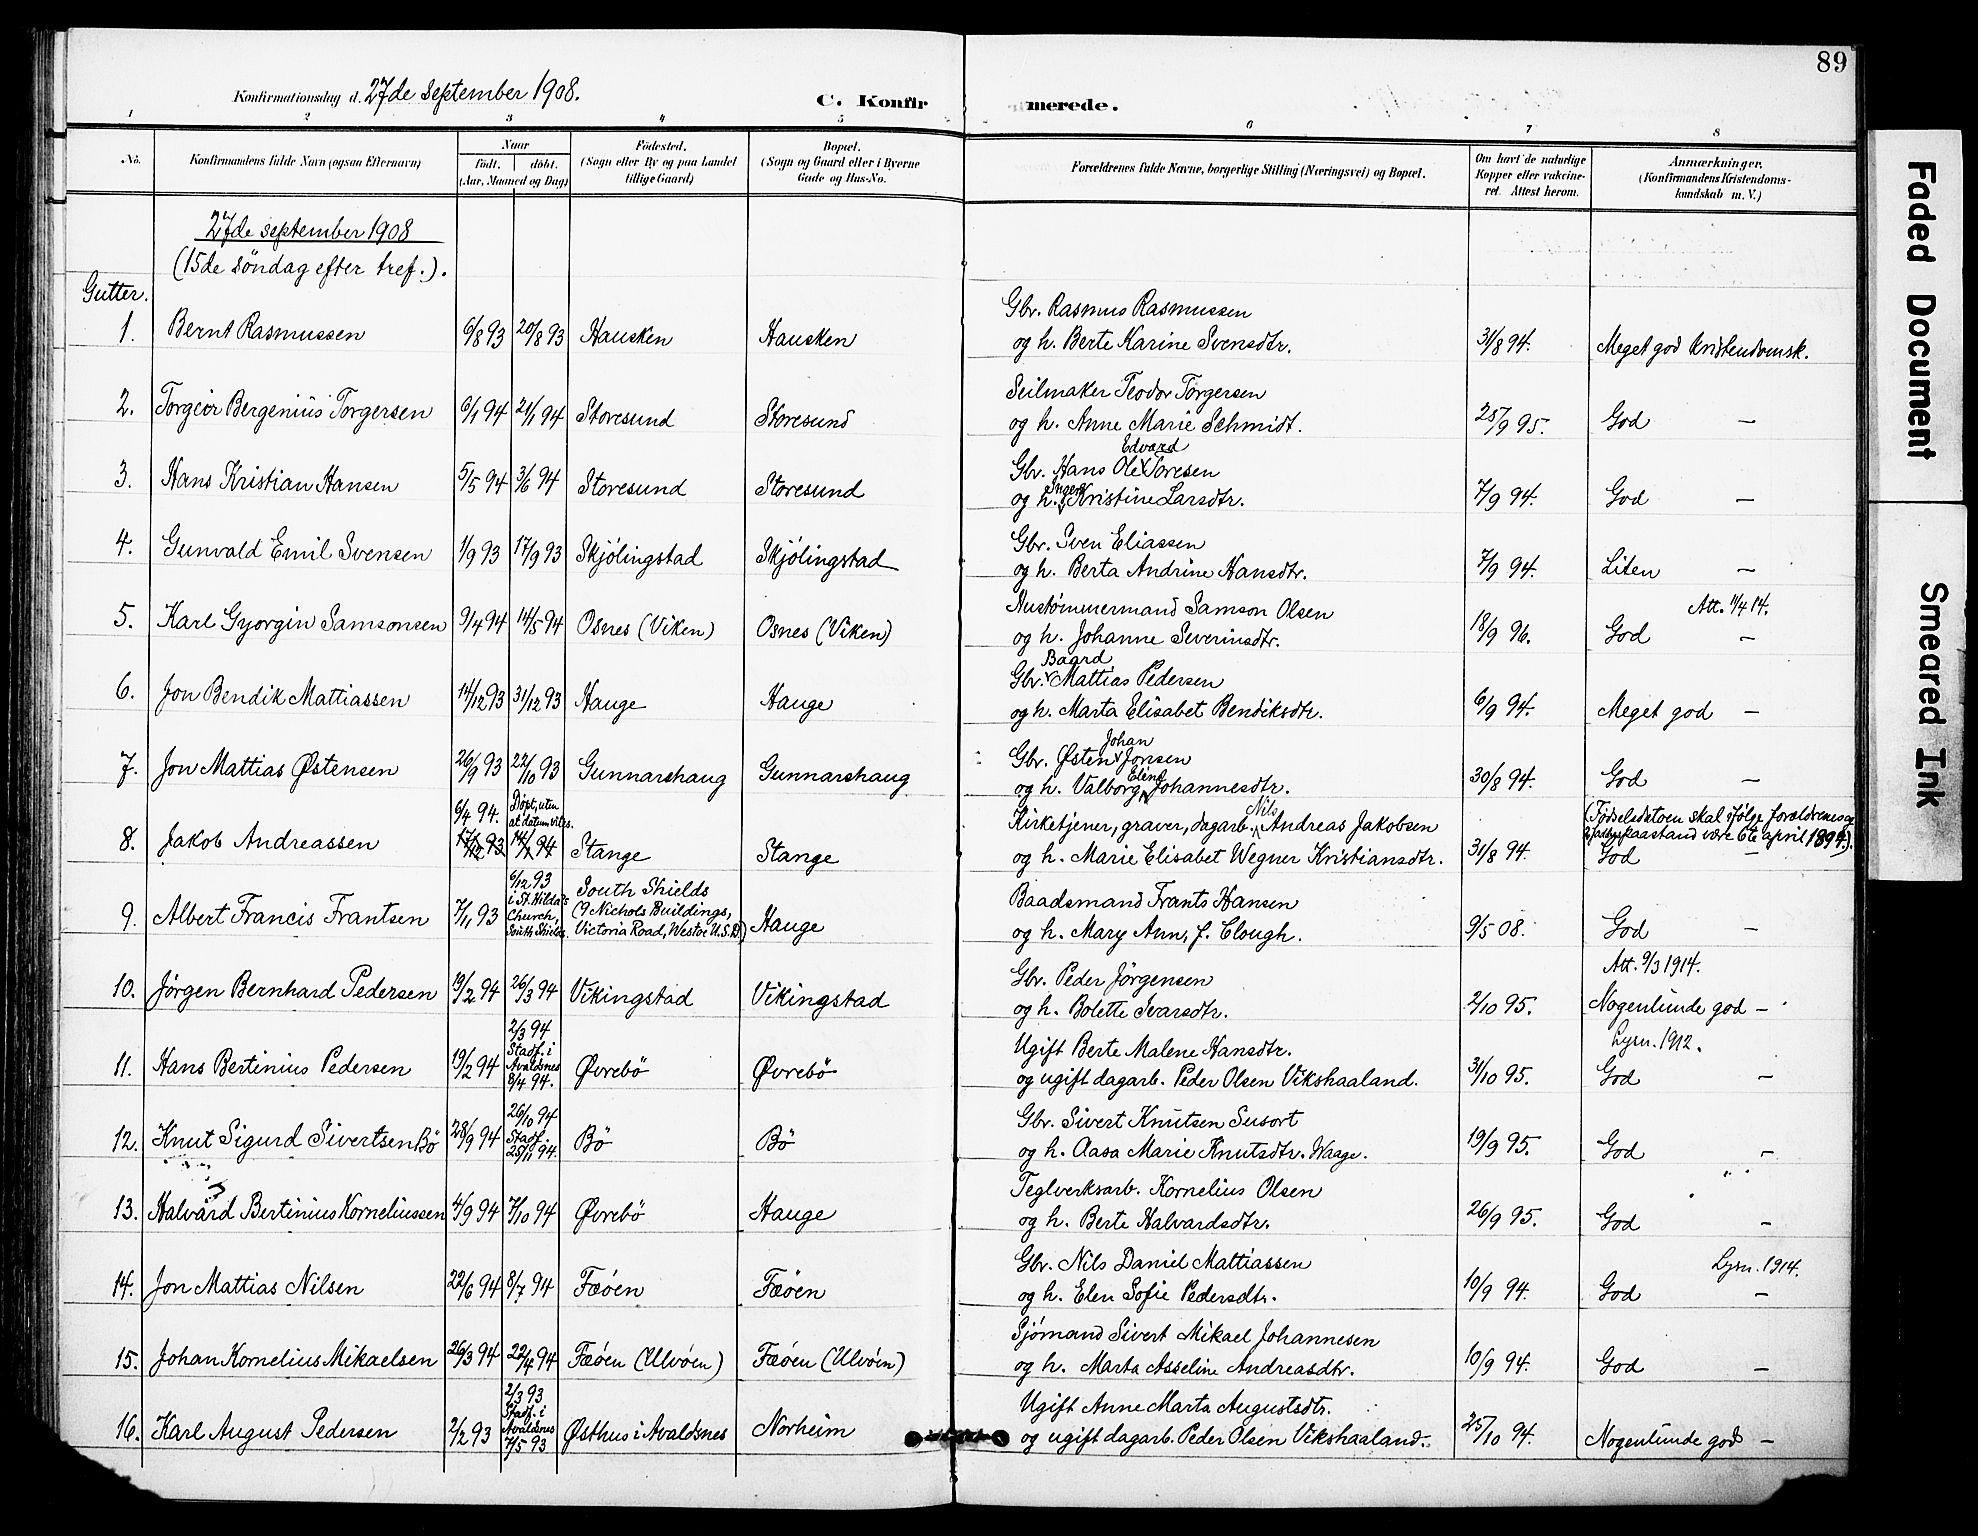 89
Konfirmationsdag d. 27de september 1908.
C. Konfirmerede.
1 2 3 4 5 6 7 8
No.
Konfirmandens fulde Navn (ogsaa Efternavn)
Naar
født. døbt.
(Aar, Maaned og Dag)
Fødested.
(Sogn eller By og paa Landet
tillige Gaard)
Bopæl.
(Sogn og Gaard eller i Byerne
Gade og Hus-No.
Forældrenes fulde Navne, borgerlige Stilling (Næringsvei) og Bopæl.
Om havt de naturlige
Kopper eller vakcine-
ret. Attest herom.
Anmærkninger.
(Konfirmandens Kristendoms-
kundskab m. V.)
27de september 1908
(15de søndag efter tref.).
Gutter.
Gbr. Rasmus Rasmussen
1. Bernt Rasmussen 6/8 93 20/8 93 Hausken Hausken og h. Berte Karine Svensdtr. 31/8 94. Meget god kristendomsk.
Seilmaker Teodor Torgersen
2. Torgeir Bergenius Torgersen 6/1 94 21/1 94 Storesund Storesund og h. Anne Marie Schmidt. 25/9 95. God —
Edvard
Gbr. Hans Ole Toresen
Inger
3. Hans Kristian Hansen 5/5 94 3/6 94 Storesund Storesund og h. Kristine Larsdtr. 7/9 94. God —
Gbr. Sven Eliassen
4. Gunvald Emil Svensen 1/9 93 17/9 93 Skjölingstad Skjölingstad og h. Berta Andrine Hansdtr. 7/9 94. Liten —
Hustømmermand Samson Olsen Att. 11/4 14.
5. Karl Gyorgin Samsonsen 9/4 94 14/5 94 Osnes (Viken) Osnes (Viken) og h. Johanne Severinsdtr. 18/9 96. God —
Baard
Gbr. Mattias Pedersen
6. Jon Bendik Mattiassen 14/12 93 31/12 93 Hauge Hauge og h. Marta Elisabet Bendiksdtr. 6/9 94. Meget god —
Johan
Gbr. Østen Jonsen
Eline
7. Jon Mattias Østensen 26/9 93 22/10 93 Gunnarshaug Gunnarshaug og h. Valborg Johannesdtr. 30/8 94. God —
6/4 94. Döpt, uten
at datum vites.
Nils
Kirketjener, graver, dagarb. Andreas Jakobsen
(Fødselsdatoen skal ifølge forældrenes og
paastand være 6te april 1894).
8. Jakob Andreassen 17/12 93 14/1 94 Stange Stange og h. Marie Elisabet Wegner Kristiansdtr. 31/8 94. God —
6/12 93
i St. Hilda's
Church,
South Shields.
South Shields
(9 Nichols Buildings,
Victoria Road, Westoe U.S.D.)
Baadsmand Frants Hansen
9. Albert Francis Frantsen 7/11 93 Hauge og h. Mary Ann, f. Clough. 9/5 08. God —
Gbr. Peder Jörgensen Att. 9/3 1914.
10. Jörgen Bernhard Pedersen 19/2 94 26/3 94 Vikingstad Vikingstad og h. Bolette Ivarsdtr. 2/10 95. Nogenlunde god —
2/3 94
Stadf. i
Avaldsnes
8/4 94.
Ugift Berte Malene Hansdtr. Lysn. 1912.
11. Hans Bertinius Pedersen 19/2 94 Øvrebö Øvrebö og ugift dagarb. Peder Olsen Vikshaaland. 31/10 95. God —
26/10 94
Stadf.
25/11 94.
Gbr. Sivert Knutsen Susort
12. Knut Sigurd Sivertsen Bö 28/9 94 Bö Bö og h. Aasa Marie Knutsdtr. Waage. 19/9 95. God —
Teglverksarb. Kornelius Olsen
13. Halvard Bertinius Korneliussen 4/9 94 7/10 94 Øvrebö Hauge og h. Berte Halvardsdtr. 26/9 95. God —
Gbr. Nils Daniel Mattiassen Lysn. 1914.
14. Jon Mattias Nilsen 22/6 94 8/7 94 Fæöen Fæöen og h. Elen Sofie Pedersdtr. 10/9 94. God —
Sjömand Sivert Mikael Johannesen
15. Johan Kornelius Mikaelsen 26/3 94 22/4 94 Fæöen (Ulvöen) Fæöen (Ulvöen) og h. Marta Asseline Andreasdtr. 10/9 94. God —
2/3 93
Stadf. i
Avaldsnes
7/5 93
Ugift Anne Marta Augustsdtr.
16. Karl August Pedersen 2/2 93 Østhus i Avaldsnes Norheim og ugift dagarb. Peder Olsen Vikshaaland. 25/10 94. Nogenlunde god —
Faded Document
Smeared Ink